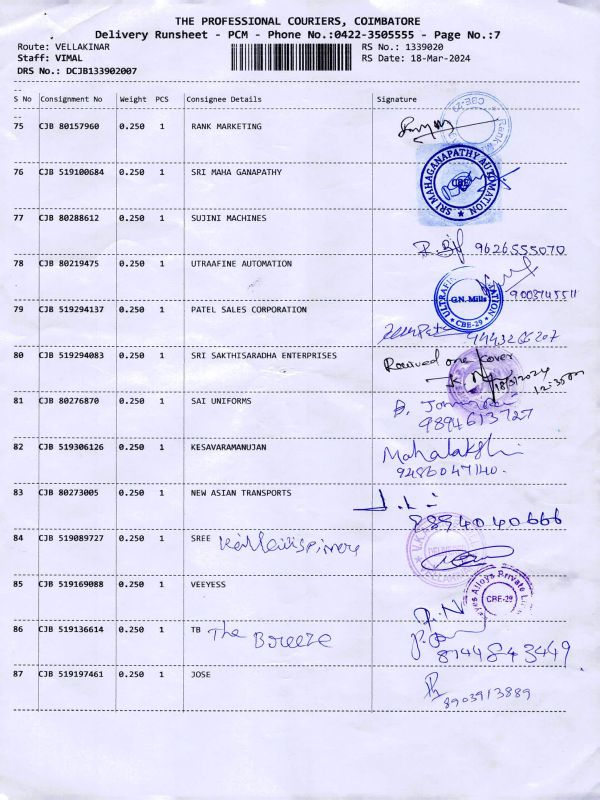 THE PROFESSIONAL COURIERS, COIMBATORE
Delivery Runsheet - PCM - Phone No.:0422-3505555 - Page No.:7
Route: VELLAKINAR RS No.: 1339020
Staff: VIMAL RS Date: 18-Mar-2024
DRS No.: DCJB133902007
S No Consignment No Weight PCS Consignee Details Signature
75 CJB 80157960 0.250 1 RANK MARKETING
CBE-29 Rank M
76 CJB 519100684 0.250 1 SRI MAHA GANAPATHY
SRI MAHAGANAPATHY AUTOMATION CBE
77 CJB 80288612 0.250 1 SUJINI MACHINES
9626555070
78 CJB 80219475 0.250 1 UTRAAFINE AUTOMATION
9003745511
G.N. Mills CBE-29
79 CJB 519294137 0.250 1 PATEL SALES CORPORATION
80 CJB 519294083 0.250 1 SRI SAKTHISARADHA ENTERPRISES
Received one cover
18/3/2024
12:35 pm
81 CJB 80276870 0.250 1 SAI UNIFORMS
9894613727
82 CJB 519306126 0.250 1 KESAVARAMANUJAN
Mahalakshmi
9486047140.
83 CJB 80273005 0.250 1 NEW ASIAN TRANSPORTS
8894040666
84 CJB 519089727 0.250 1 SREE
85 CJB 519169088 0.250 1 VEEYESS
eyes Alloys Private Li CBE-29
86 CJB 519136614 0.250 1 TB The Breeze
8144843449
87 CJB 519197461 0.250 1 JOSE
8903913889